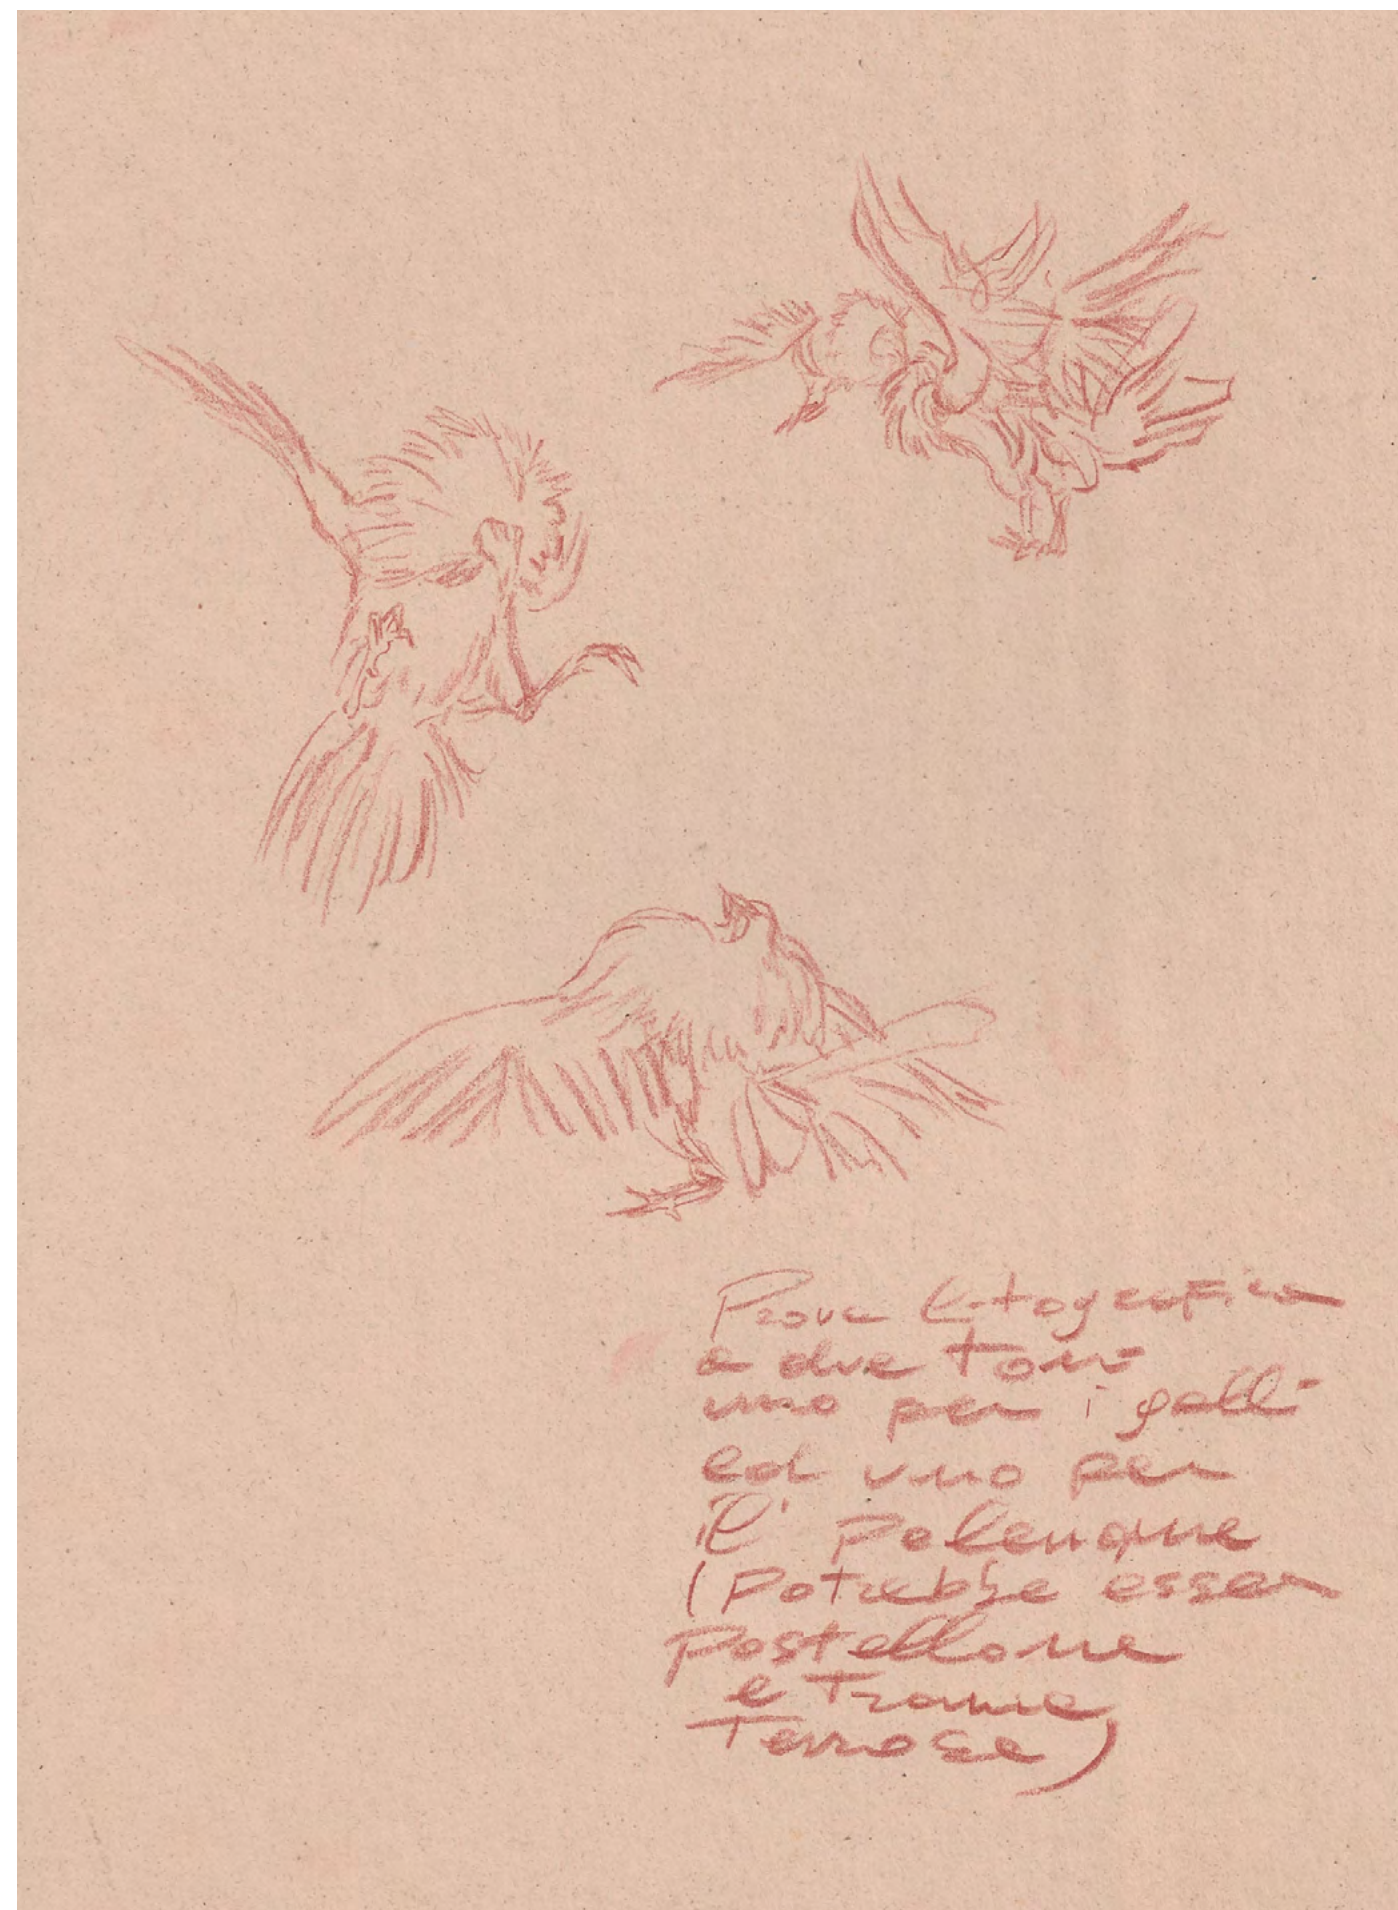 Prova litografica
a due toni
uno per i galli
ed uno per
il palenque
(potrebbe esser
pastellone
e trame
terrose)